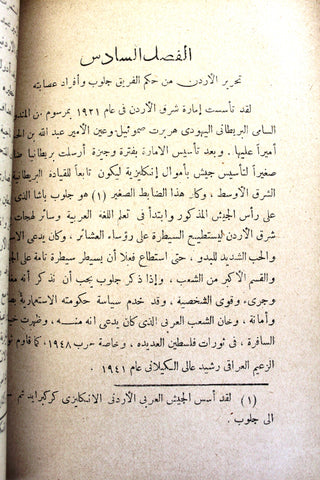 الفصل السادس
تحرير الأردن من حكم الفريق جلوب وأفراد عصابته
لقد تأسست إمارة شرق الأردن في عام ١٩٢١ بمرسوم من المندو
السامي البريطاني اليهودي هربرت صموئيل وعين الأمير عبد الله بن الح
أميراً عليها . وبعد تأسيس الامارة بفترة وجيزة أرسلت بريطانيا ضا
صغيراً لتأسيس جيش بأموال إنكليزية ليكون تابعاً للقيادة البريطانية
الشرق الأوسط ، وكان هذا الضابط الصغير (١) هو جلوب باشا الذي
على رأس الجيش المذكور وابتدأ في تعلم اللغه العربية وسائر لهجات
شرق الأردن ليستطيع السيطرة على رؤساء العشائر ، وكان يدعى الا
والحب الشديد للبدو ، حتى استطاع فعلا أن يسيطر سيطرة تامة على الج
والقسم الأكبر من الشعب ، وإذا ذكر جلوب يجب أن نذكر أنه مغا
وجرىء وقوى الشخصية ، وقد خدم سياسة حكومته الاستعمارية بص
وأمانة ، وخان الشعب العربي الذى كان يدعى انه منه ، وظهرت خيـ
السافرة ، في ثورات فلسطين العديده ، وخاصة حرب ١٩٤٨ كما قاوم ثور
الزعيم العراقي رشيد عالى الكيلانى عام ١٩٤١ .
(١) لقد أسس الجيش العربي الأردنى الانكليزى كركبرايد ثم
الى جلوب